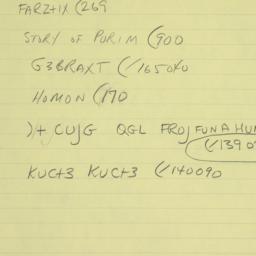 FARZTIX (269
STORY OF PURIM (900
G3BRAXT (/165040
HOMON (170
)+ CUJG QGL FROJ FUN A HUN
(/1390
KUCT3 KUCT3 (/140090